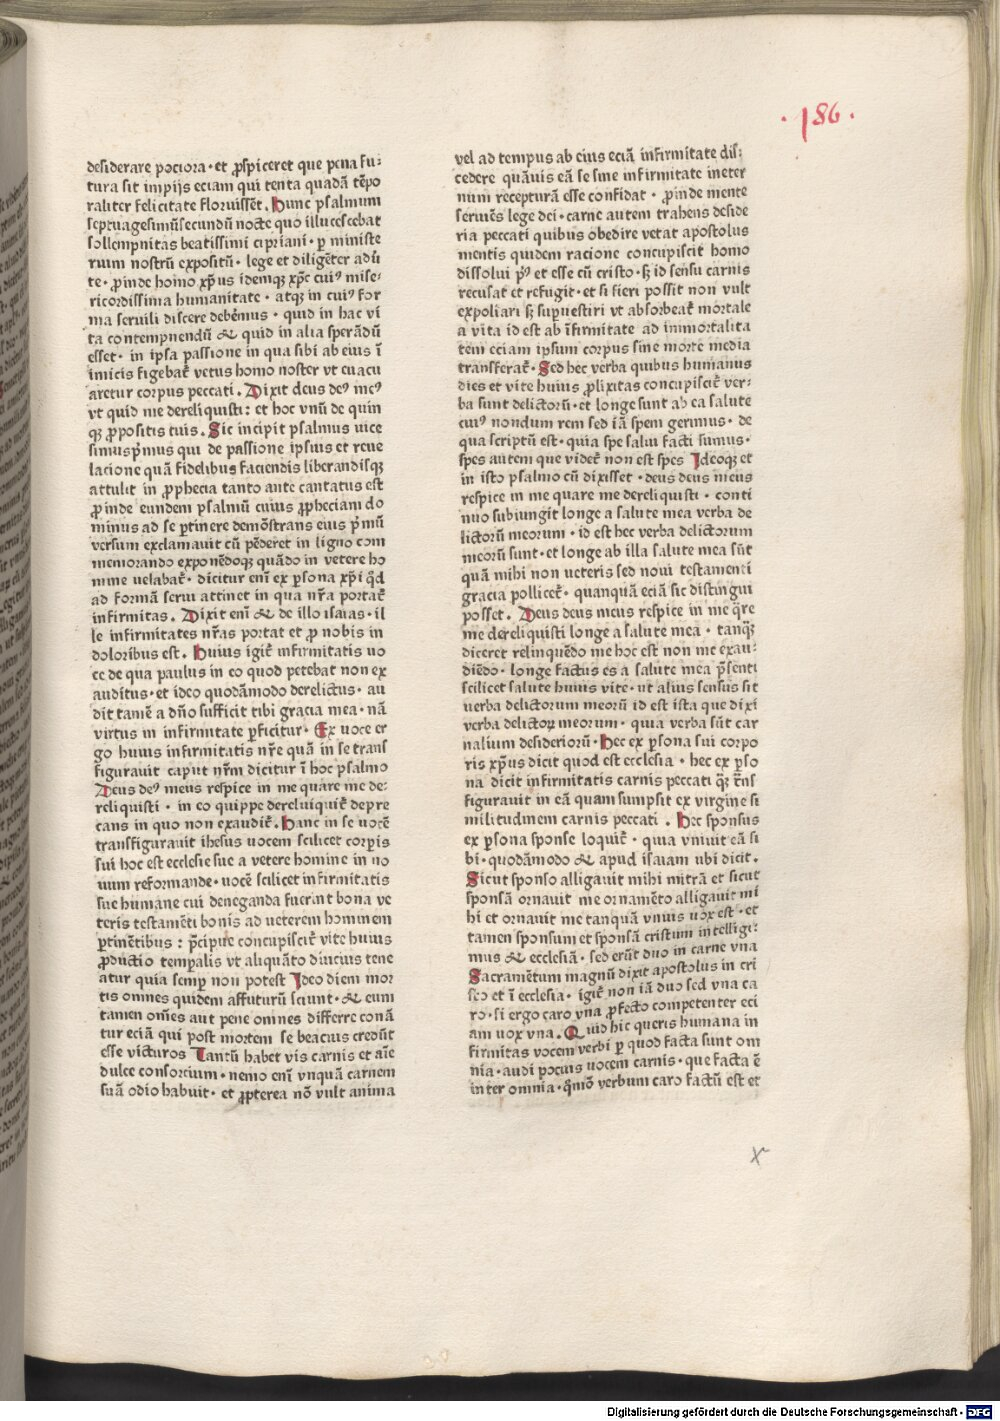 ·186·
desiderare pociora· et ꝓspiceret que pena fu:
tura sit impijs eciam qui tenta quadã tẽpo
raliter felicitate floruissẽt. Hunc psalmum
septuagesimũsecundũ nocte quo illucescebat
sollempnitas beatissimi cipriani· ꝑ ministe
rium nostrũ expositũ· lege et diligẽter adũ
te· ꝓinde homo xp̃us idemqꝫ xp̃c cuiꝰ mise:
ricordissima humanitate· atqꝫ in cuiꝰ for
ma seruili discere debẽmus· quid in hac vi
ta contempnendũ & quid in alia sperãdũ
esset· in ipsa passione in qua sibi ab eius ĩ
imicis figebat᷑ vetus homo noster vt euacu
aretur corpus peccati. Dixit deus deꝰ meꝰ
vt quid me dereliquisti: et hoc vnũ de quin
qꝫ ꝓpositis tuis. Sic incipit psalmus vice
simuspͥmus qui de passione ipsius et reue
lacione quã fidelibus faciendis liberandisqꝫ
attulit in ꝓphecia tanto ante cantatus est
ꝓinde eundem psalmũ cuius ꝓpheciam do
minus ad se ꝑtinere demõstrans eius pͥmũ
versum exclamauit cũ pẽderet in ligno com
memorando exponẽdoqꝫ quãdo in vetere ho
mine uelabat᷑· dicitur eni᷑ ex ꝑsona xp̃i qͥd
ad formã serui attinet in qua nr̃a portat᷑
infirmitas. Dixit eni᷑ & de illo isaias· il
le infirmitates nr̃as portat et ꝓ nobis in
doloribus est. Huius igit᷑ infirmitatis uo
ce de qua paulus in eo quod petebat non ex
auditus· et ideo quodãmodo derelictus· au
dit tamẽ a dño sufficit tibi gracia mea· nã
virtus in infirmitate ꝑficitur· Ex uoce er
go huius infirmitatis nr̃e quã in se trans
figurauit caput nr̃m dicitur ĩ hoc psalmo
Deus deꝰ meus respice in me quare me de:
reliquisti· in eo quippe dereluiquit᷑ depre
cans in quo non exaudit᷑. Hanc in se uocẽ
transfigurauit ihesus uocem scilicet corꝑis
sui hoc est ecclesie sue a vetere homine in no
uum reformande· uocẽ scilicet infirmitatis
sue humane cui deneganda fuerint bona ve
teris testamẽti bonis ad ueterem hominem
ꝑtinẽtibus: p̃cipue concupiscit᷑ vite huius
ꝓductio temꝑalis vt aliquãto diucius tene
atur quia semꝑ non potest Ideo diem mor
tis omnes quidem affuturũ sciunt· & eum
tamen oms̃ aut pene omnes differre conã
tur eciã qui post mortem se beacius credũt
esse victuros Tantũ habet vis carnis et aĩe
dulce consorcium· nemo eni᷑ vnquã carnem
suã odio habuit· et ꝓpterea nõ vult anima
vel ad tempus ab eius eciã infirmitate dis:
cedere quãuis eã se sine infirmitate ineter
num recepturã esse confidat· ꝓinde mente
seruiẽs lege dei· carne autem trahens deside
ria peccati quibus obedire vetat apostolus
mentis quidem racione concupiscit homo
dissolui pͥꝰ et esse cũ cristo· sꝫ id sensu carnis
recusat et refugit· et si fieri possit non vult
expoliari sꝫ suꝑuestiri vt absorbeat᷑ mortale
a vita id est ab ĩfirmitate ad immortalita
tem eciam ipsum corpus sine morte media
transferat᷑· Sed hec verba quibus humanus
dies et vite huius ꝓlixitas concupiscit᷑ ver:
ba sunt delictorũ· et longe sunt ab ea salute
cuiꝰ nondum rem sed iã spem gerimus· de
qua scriptũ est· quia spe salui facti sumus·
spes autem que videt᷑ non est spes Ideoqꝫ et
in isto psalmo cũ dixisset· deus deus meus
respice in me quare me dereliquisti· conti
nuo subiungit longe a salute mea verba de
lictorũ meorum· id est hec verba delictorum
meorũ sunt· et longe ab illa salute mea sũt
quã mihi non ueteris sed noui testamenti
gracia pollicet᷑· quanquã eciã sic distingui
posset. Deus deus meus respice in me qͣre
me dereliquisti longe a salute mea· tanqͣꝫ
diceret relinquẽdo me hoc est non me exau:
diẽdo· longe factus es a salute mea p̃senti
scilicet salute huius vite· ut alius sensus sit
uerba delictorum meorũ id est ista que dixi
verba delictoꝝ meorum· quia verba sũt car
nalium desideriorũ· Hec ex ꝑsona sui corpo
ris xp̃us dicit quod est ecclesia· hec ex ꝑso
na dicit infirmitatis carnis peccati qͣꝫ trãs
figurauit in eã quam sumpsit ex virgine si
militudinem carnis peccati. Hec sponsus
ex ꝑsona sponse loquit᷑· quia vniuit eã si
bi· quodãmodo & apud isaiam ubi dicit.
Sicut sponso alligauit mihi mitrã et sicut
sponsã ornauit me ornamẽto alligauit mi
hi et ornauit me tanquã vnuis uox est· et
tamen sponsum et sponsã cristum intelligi:
mus & ecclesiã· sed erũt duo in carne vna
Sacramẽtum magnũ dixit apostolus in cri
sto et ĩ ecclesia· igit᷑ non iã duo sed vna ca
ro· si ergo caro vna ꝓfecto competenter eci
am uox vna. Quid hic queris humana in
firmitas vocem verbi ꝑ quod facta sunt om
nia· audi pocius uocem carnis· que facta ẽ
inter omnia· qm̃õ verbum caro factũ est et
x
Digitalisierung gefördert durch die Deutsche Forschungsgemeinschaft - DFG